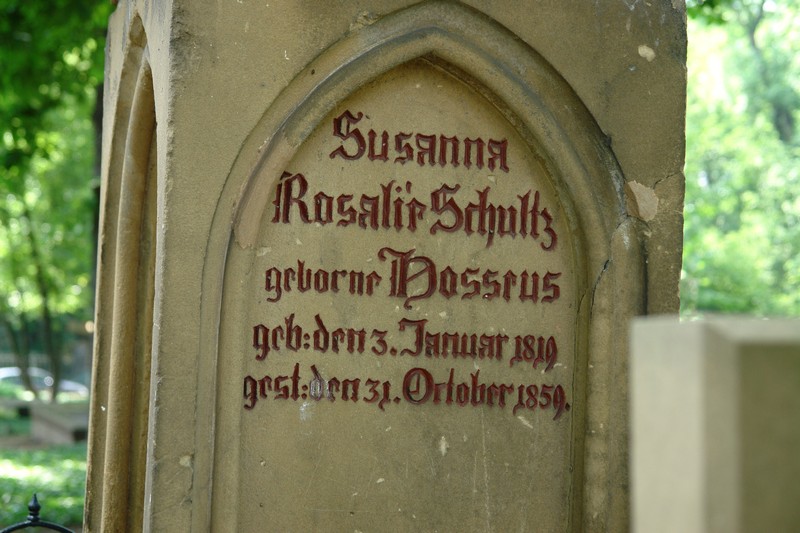 Susanna
Rosalie Schultz
geborne Hosseus
geb: den 3. Januar 1819
gest: den 31. October 1859.